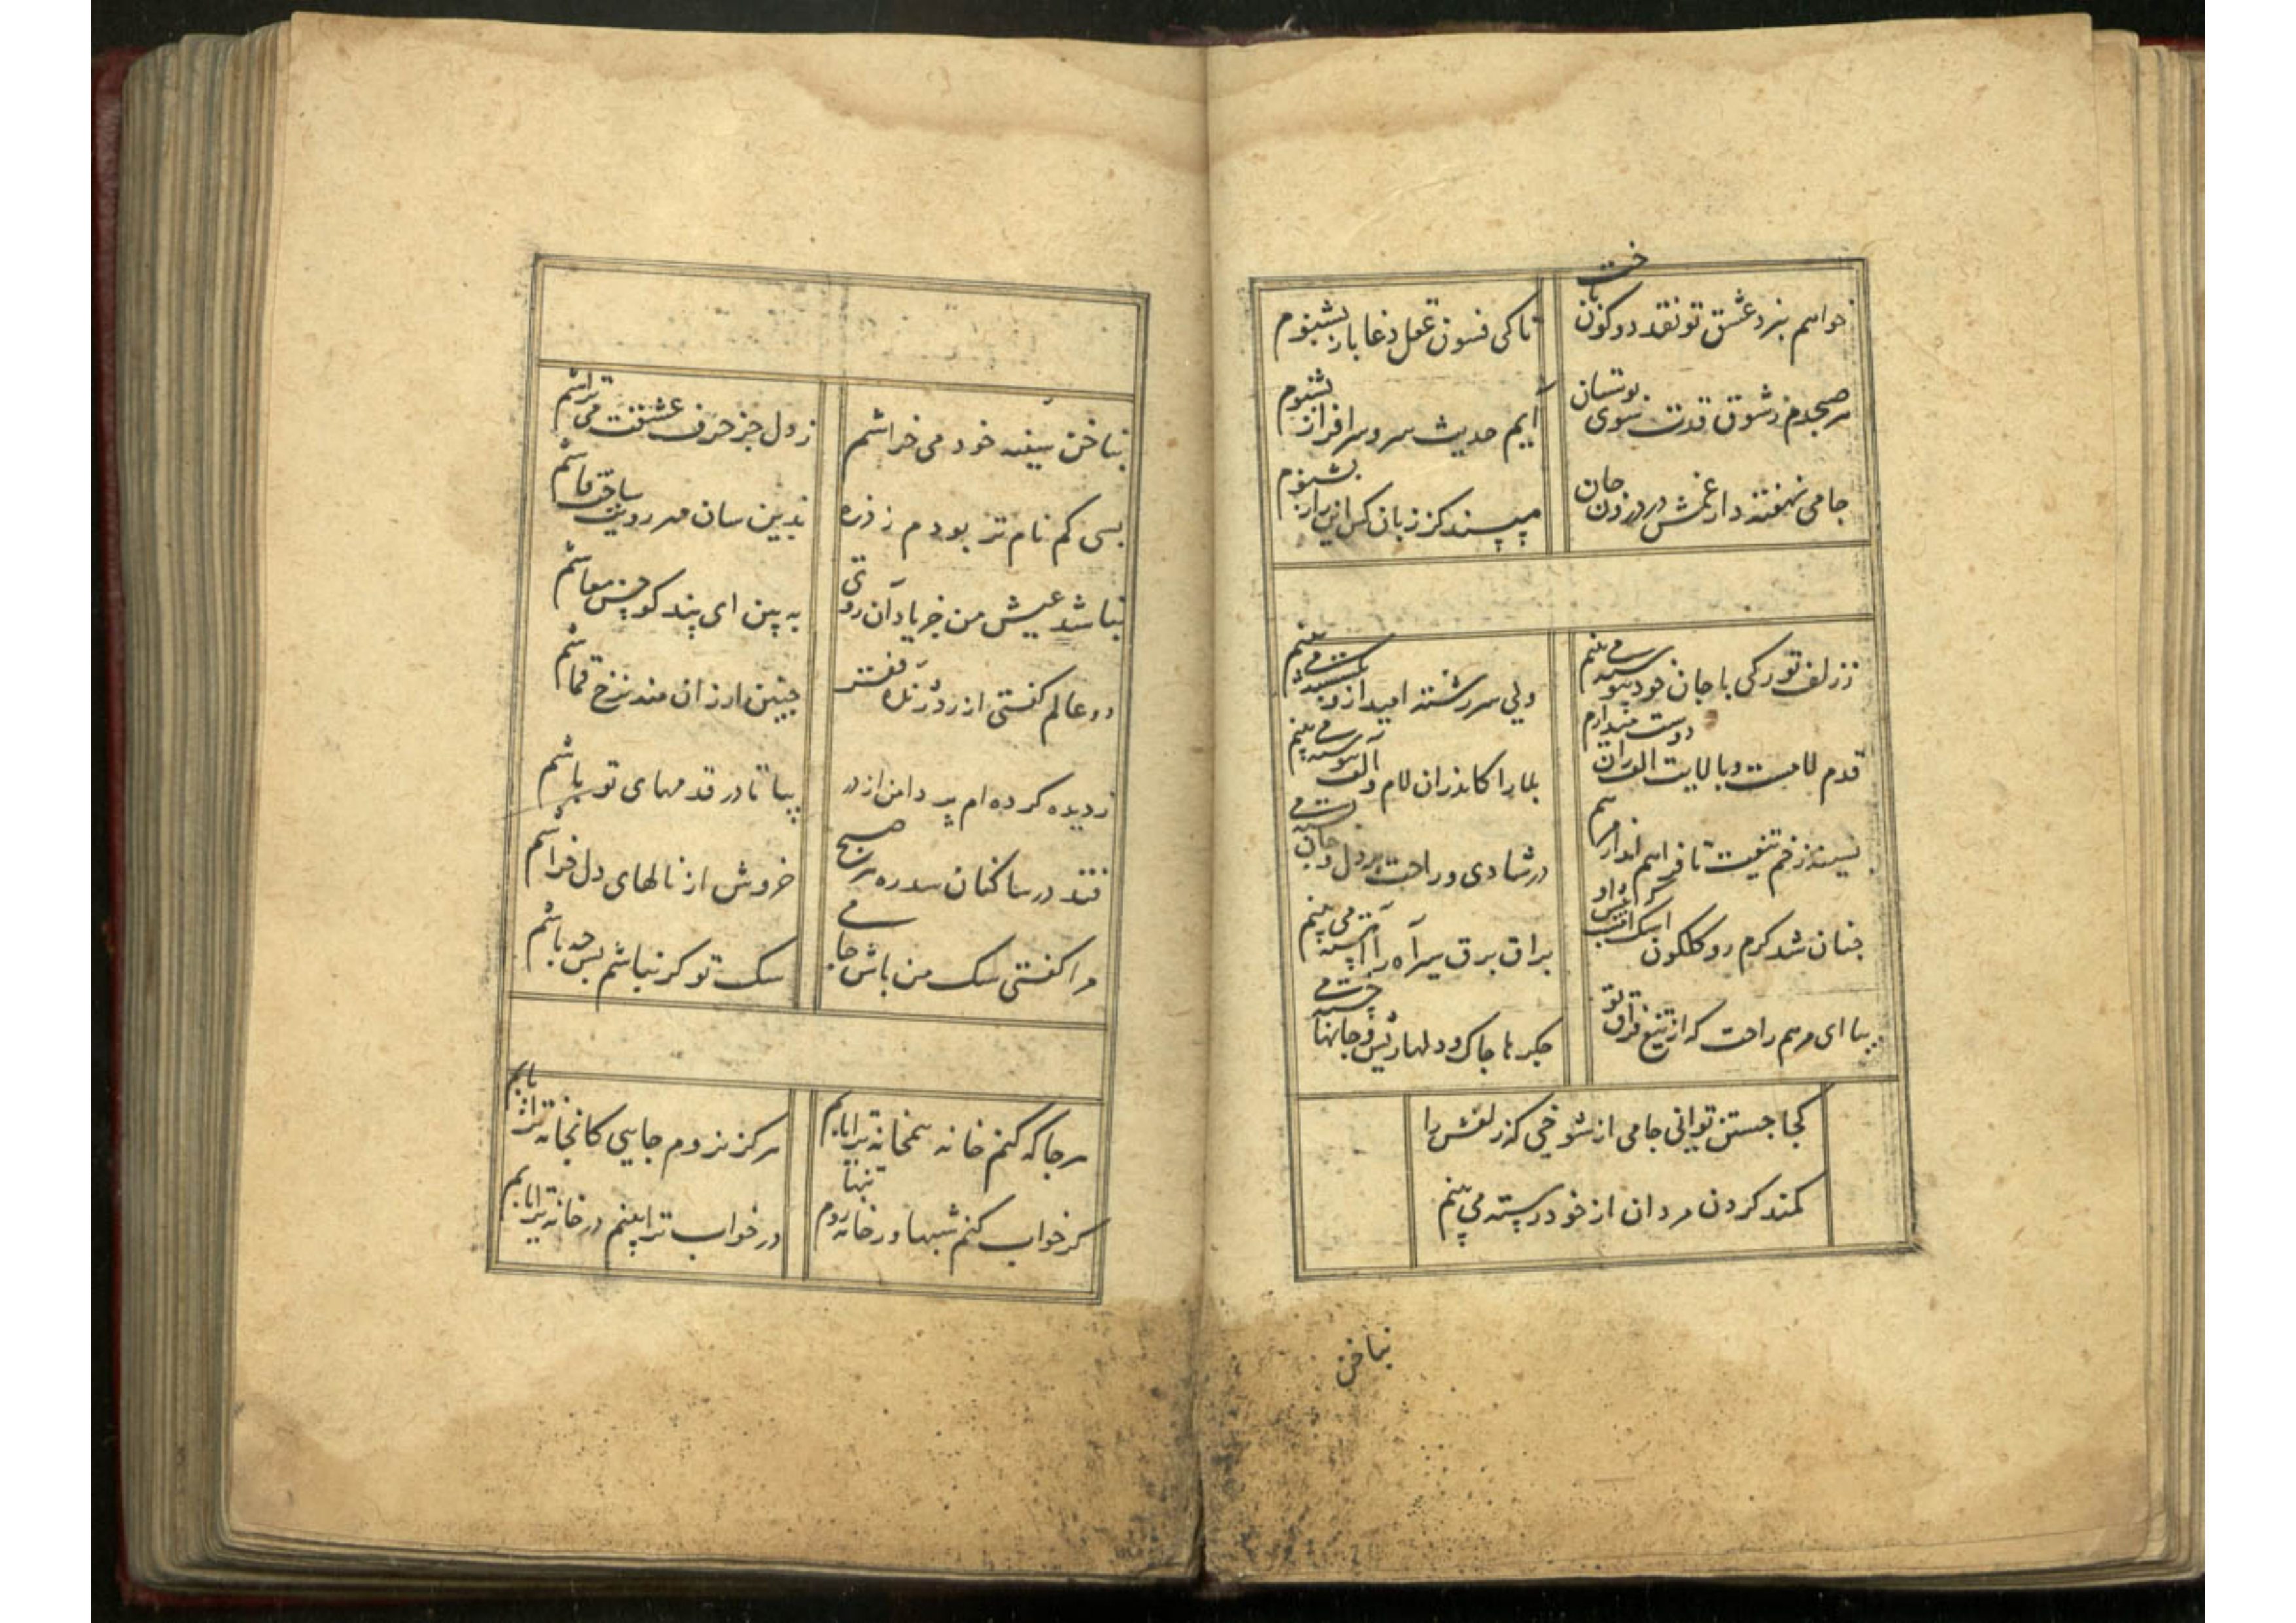 خواهم بنرد عشق تو نقد دو کون باخت
تا کی فسون عقل دغا باز بشنوم
هر صبحدم ز شوق قدت سوی بوستان
آیم حدیث سرو سرافراز بشنوم
جامی نهفته دار غمش در درون جان
مپسند کز زبان کس این راز بشنوم
ز زلف تو رکی با جان خود پیوسته می بینم
ولی سررشته امید ازو بگسسته می بینم
قدم لامست و بالایت الف زان دوست میدارم
بلا را کاندران لام و الف پیوسته می بینم
بسینه زخم تیغت تا فراهم
در شادی و راحت بر دل و جان بسته می بینم
چنان شد کرم رو کلکون اشک
براق برق سیر آه را آهسته می بینم
بیا ای مرهم راحت که از تیغ فراق تو
جکرها چاک و دلها ریش و جانها خسته می بینم
کجا جستن توانی جامی از شوخی که زلفش را
کمند کردن مردان از خود رسته می بینم
بناخن
بناخن سینه خود می خراشم
ز دل جز حرف عشقت می تراشم
بسی کم نام تر بودم ز ذره
بدین سان مهر رویت ساخت فاشم
نباشد عیش من جز یاد آن روی
به بین ای پند کو حسن معاشم
دو عالم کفتی از
چنین ارزان منه نرخ قماشم
ز دیده کرده ام پر دامن از در
بیا تا در قدمهای تو باشم
فتد در ساکنان سدره هر صبح
خروش از نالهای دل خراشم
مرا کفتی سک من باش جامی
سک تو کر نباشم پس چه باشم
هر جا که کنم خانه همخانه ترا یابم
هرکز نروم جایی کانجا نه ترا یابم
کر خواب کنم شبها در خانه روم تنها
در خواب ترا بینم در خانه ترا یابم